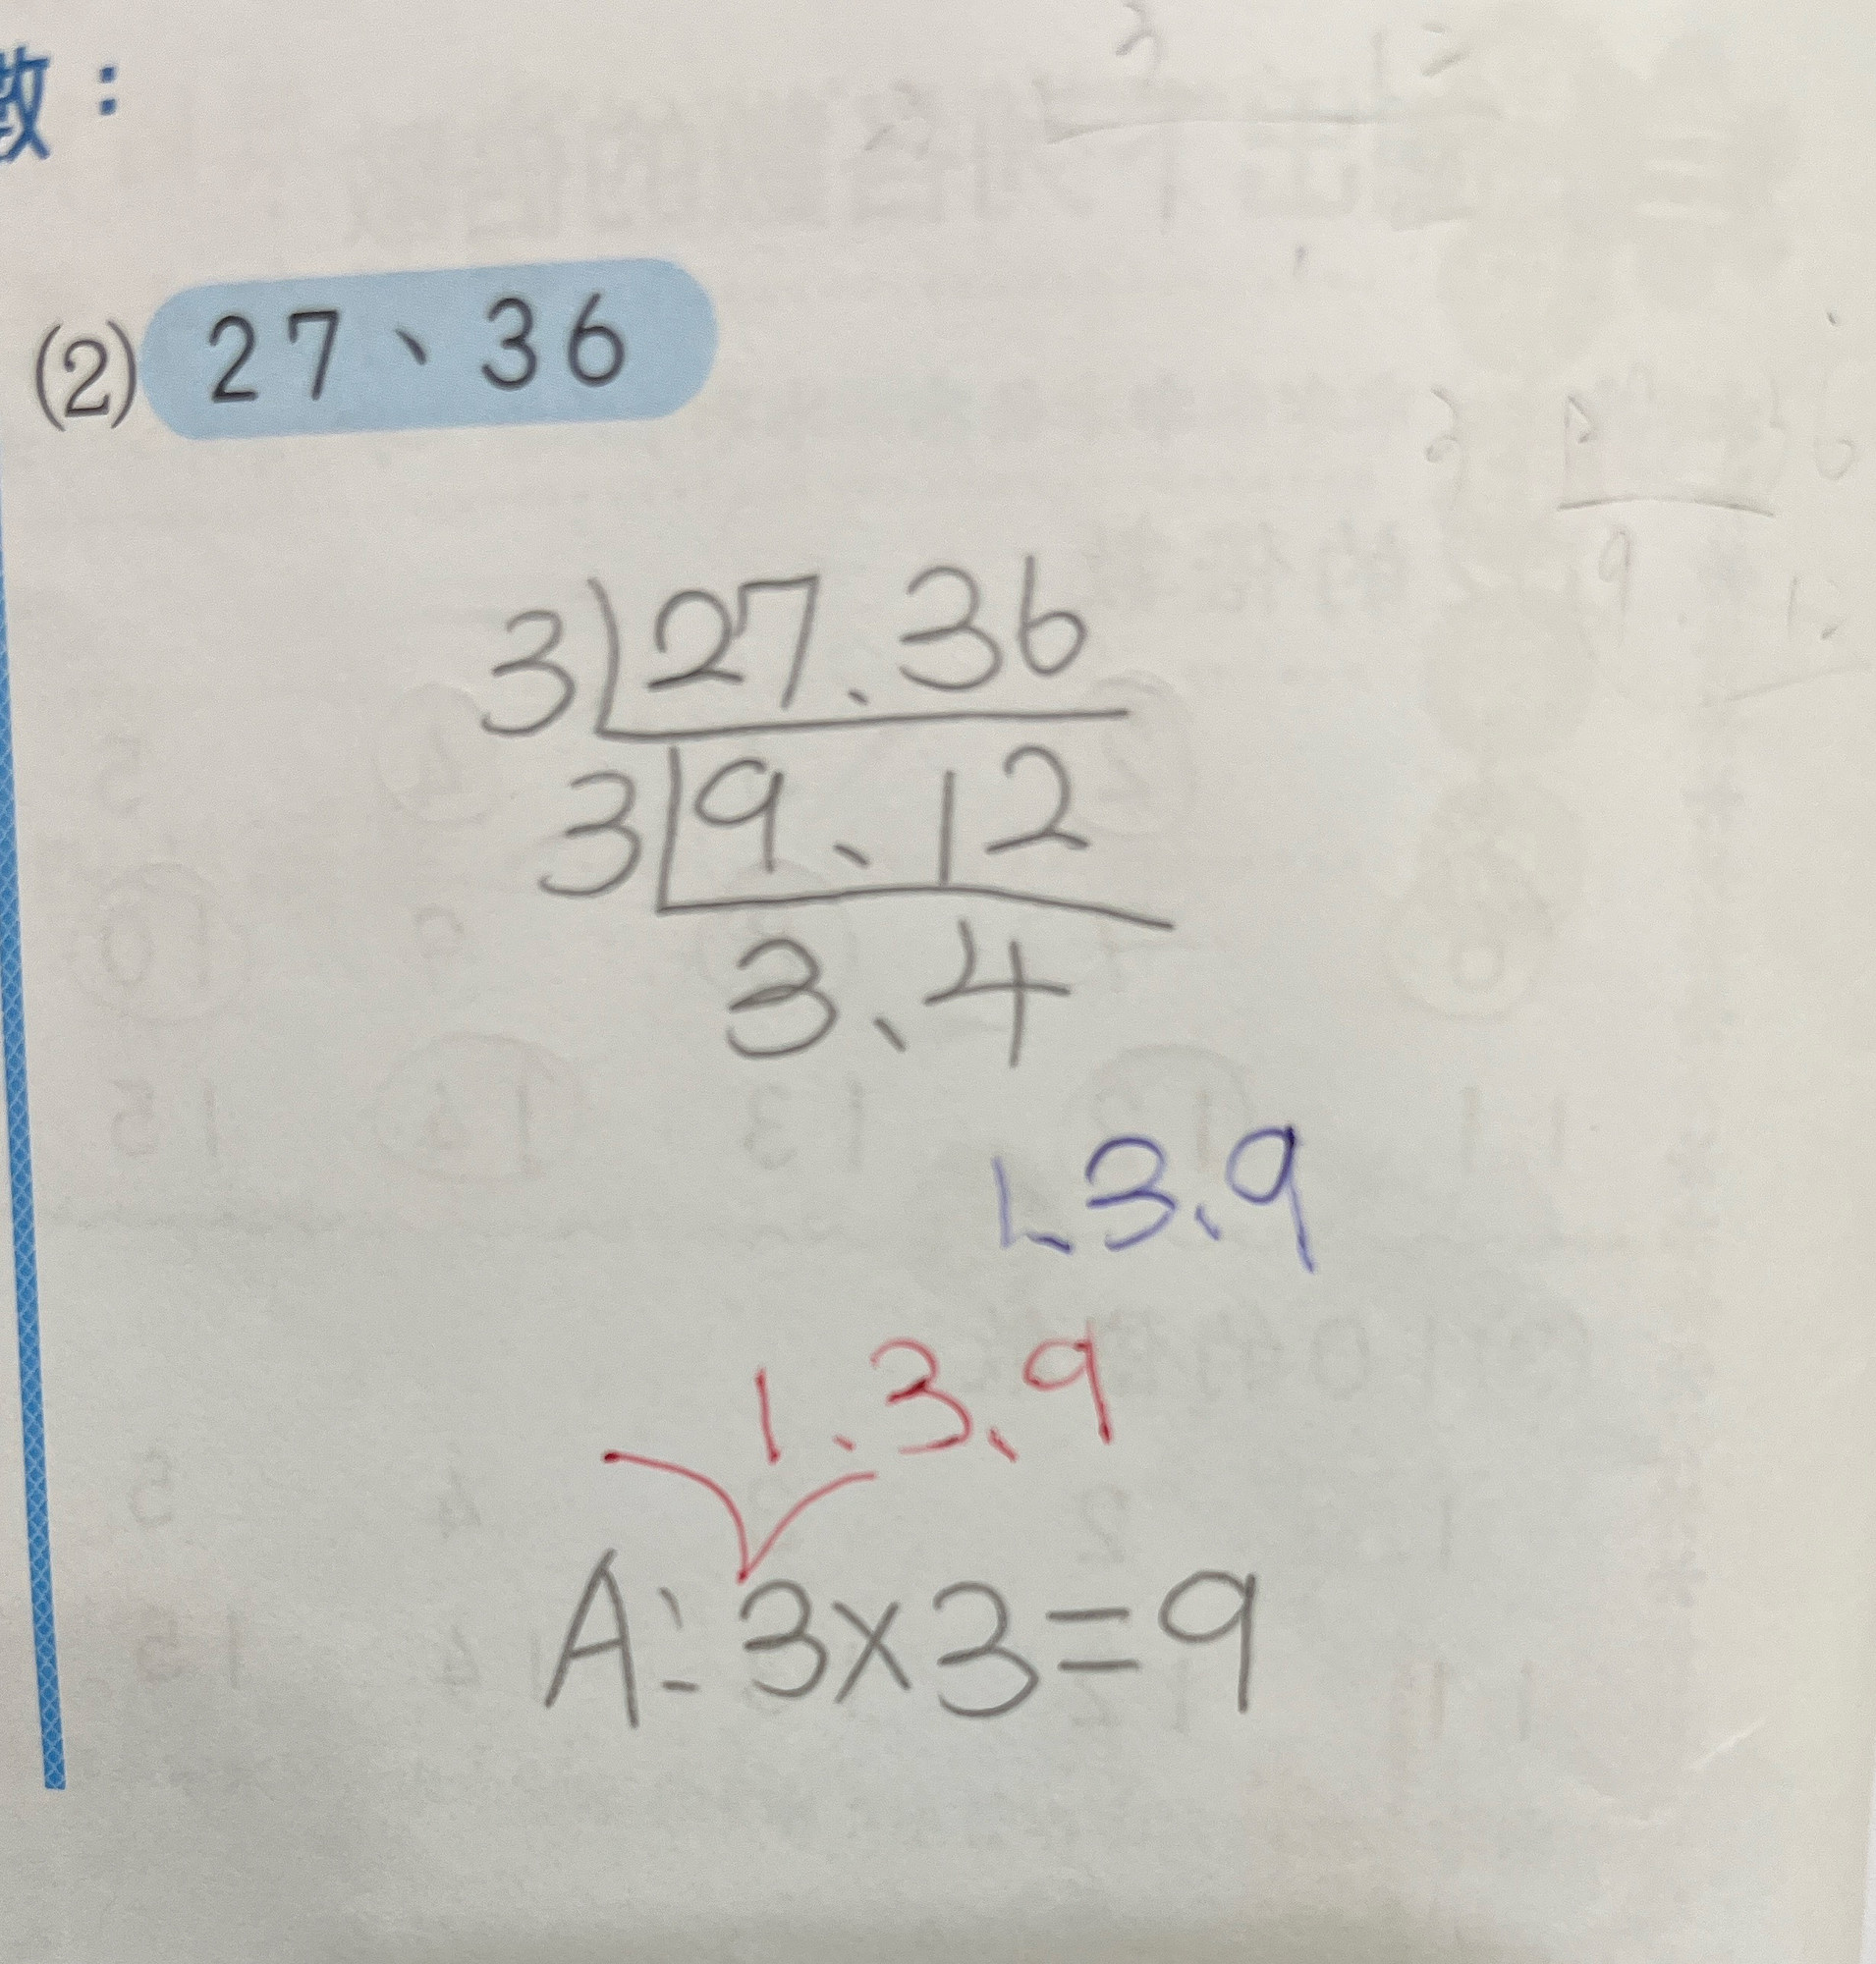 數：
(2) 27、36
3 27、36
3 9、12
3、4
1、3、9
1、3、9
A：3×3=9